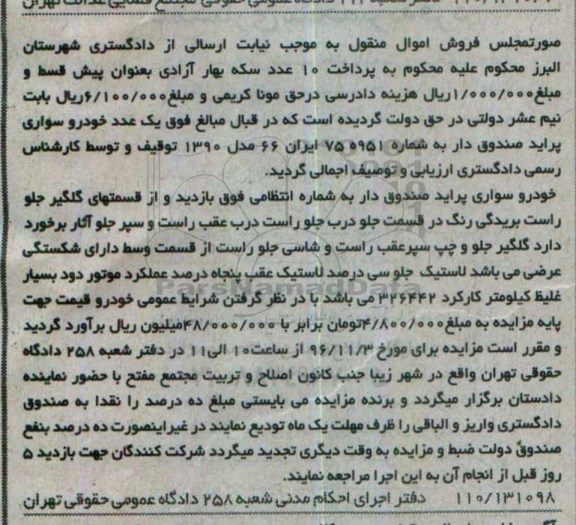 صورتمجلس فروش اموال منقول به موجب نیابت ارسالی از دادگستری شهرستان
البرز محکوم علیه محکوم به پرداخت ۱۰ عدد سکه بهار آزادی بعنوان پیش قسط و
مبلغ۱/۰۰۰/۰۰۰ریال هزینه دادرسی درحق مونا کریمی و مبلغ۶/۱۰۰/۰۰۰ریال بابت
نیم عشر دولتی در حق دولت گردیده است که در قبال مبالغ فوق یک عدد خودرو سواری
پراید صندوق دار به شماره ۹۵۱ه۷۵ ایران ۶۶ مدل ۱۳۹۰ توقیف و توسط کارشناس
رسمی دادگستری ارزیابی و توصیف اجمالی گردید.
خودرو سواری پراید صندوق دار به شماره انتظامی فوق بازدید و از قسمتهای گلگیر جلو
راست بریدگی رنگ در قسمت جلو درب جلو راست درب عقب راست و سپر جلو آثار برخورد
دارد گلگیر جلو و چپ سپرعقب راست و شاسی جلو راست از قسمت وسط دارای شکستگی
عرضی می باشد لاستیک جلو سی درصد لاستیک عقب پنجاه درصد عملکرد موتور دود بسیار
غلیظ کیلومتر کارکرد ۳۲۶۴۴۲ می باشد با در نظر گرفتن شرایط عمومی خودرو قیمت جهت
پایه مزایده به مبلغ۴/۸۰۰/۰۰۰تومان برابر با ۴۸/۰۰۰/۰۰۰میلیون ریال برآورد گردید
و مقرر است مزایده برای مورخ ۹۶/۱۱/۳ از ساعت۱۰ الی۱۱ در دفتر شعبه ۲۵۸ دادگاه
حقوقی تهران واقع در شهر زیبا جنب کانون اصلاح و تربیت مجتمع مفتح با حضور نماینده
دادستان برگزار میگردد و برنده مزایده می بایستی مبلغ ده درصد را نقدا به صندوق
دادگستری واریز و الباقی را ظرف مهلت یک ماه تودیع نمایند در غیراینصورت ده درصد بنفع
صندوق دولت ضبط و مزایده به وقت دیگری تجدید میگردد شرکت کنندگان جهت بازدید ۵
روز قبل از انجام آن به این اجرا مراجعه نمایند.
۱۱۰/۱۳۱۰۹۸ دفتر اجرای احکام مدنی شعبه ۲۵۸ دادگاه عمومی حقوقی تهران
ParsNamadData